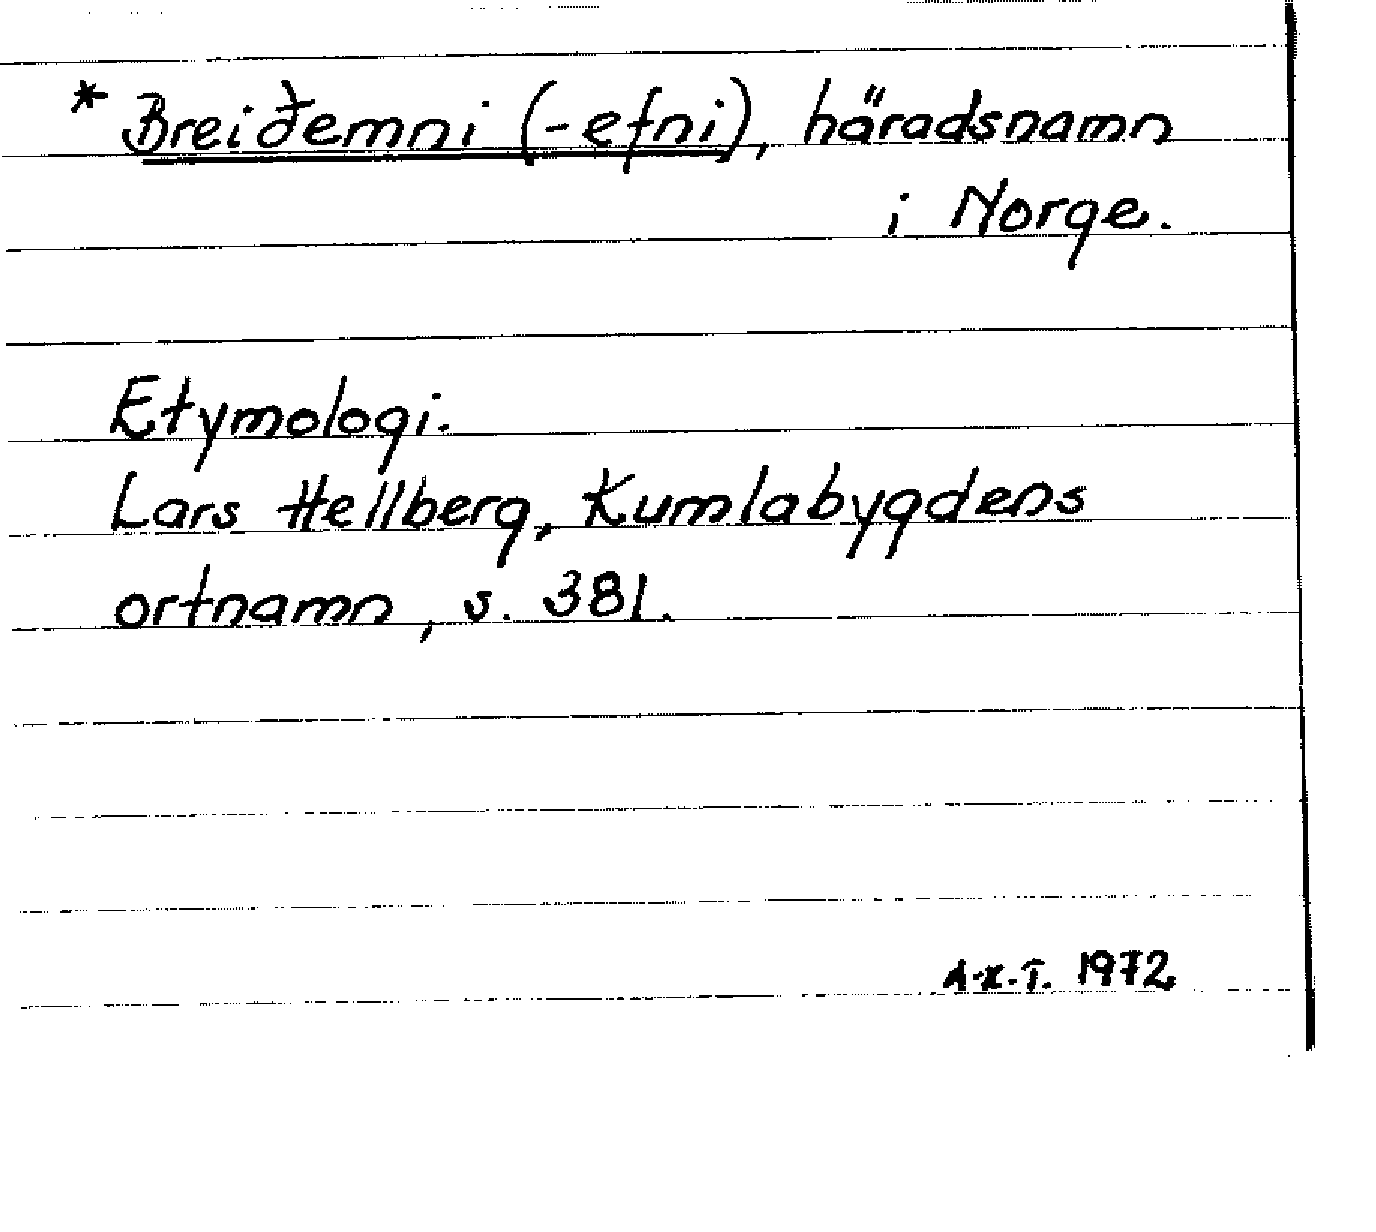 * Breiðemni (-efni), häradsnamn
i Norge.
Etymologi.
Lars Hellberg, Kumlabygdens
ortnamn, s. 381.
A.X.T. 1972